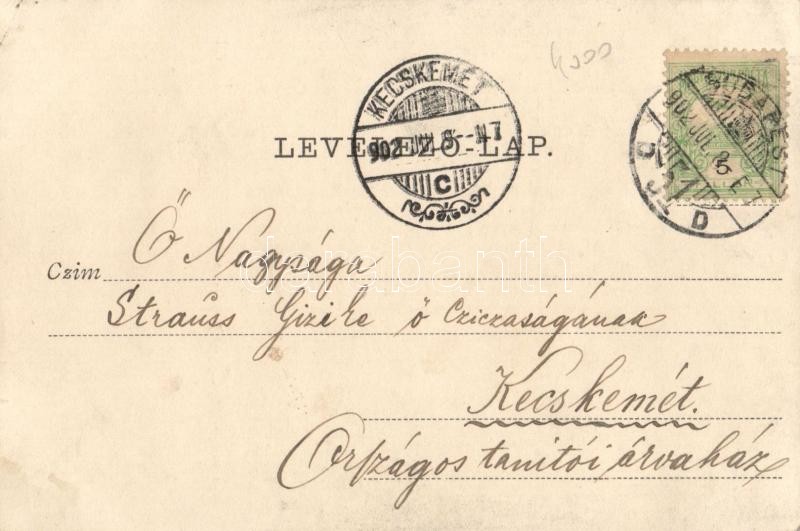 4000
KECSKEMÉT
902 JUL 8 - N7
C
BUDAPEST
902 JUL
D
5
LEVELEZŐ-LAP.
darabanth
Czim
Ő Nagysága
Strauss Gizike ő Cziczaságának
Kecskemét.
Országos tanítói árvaház